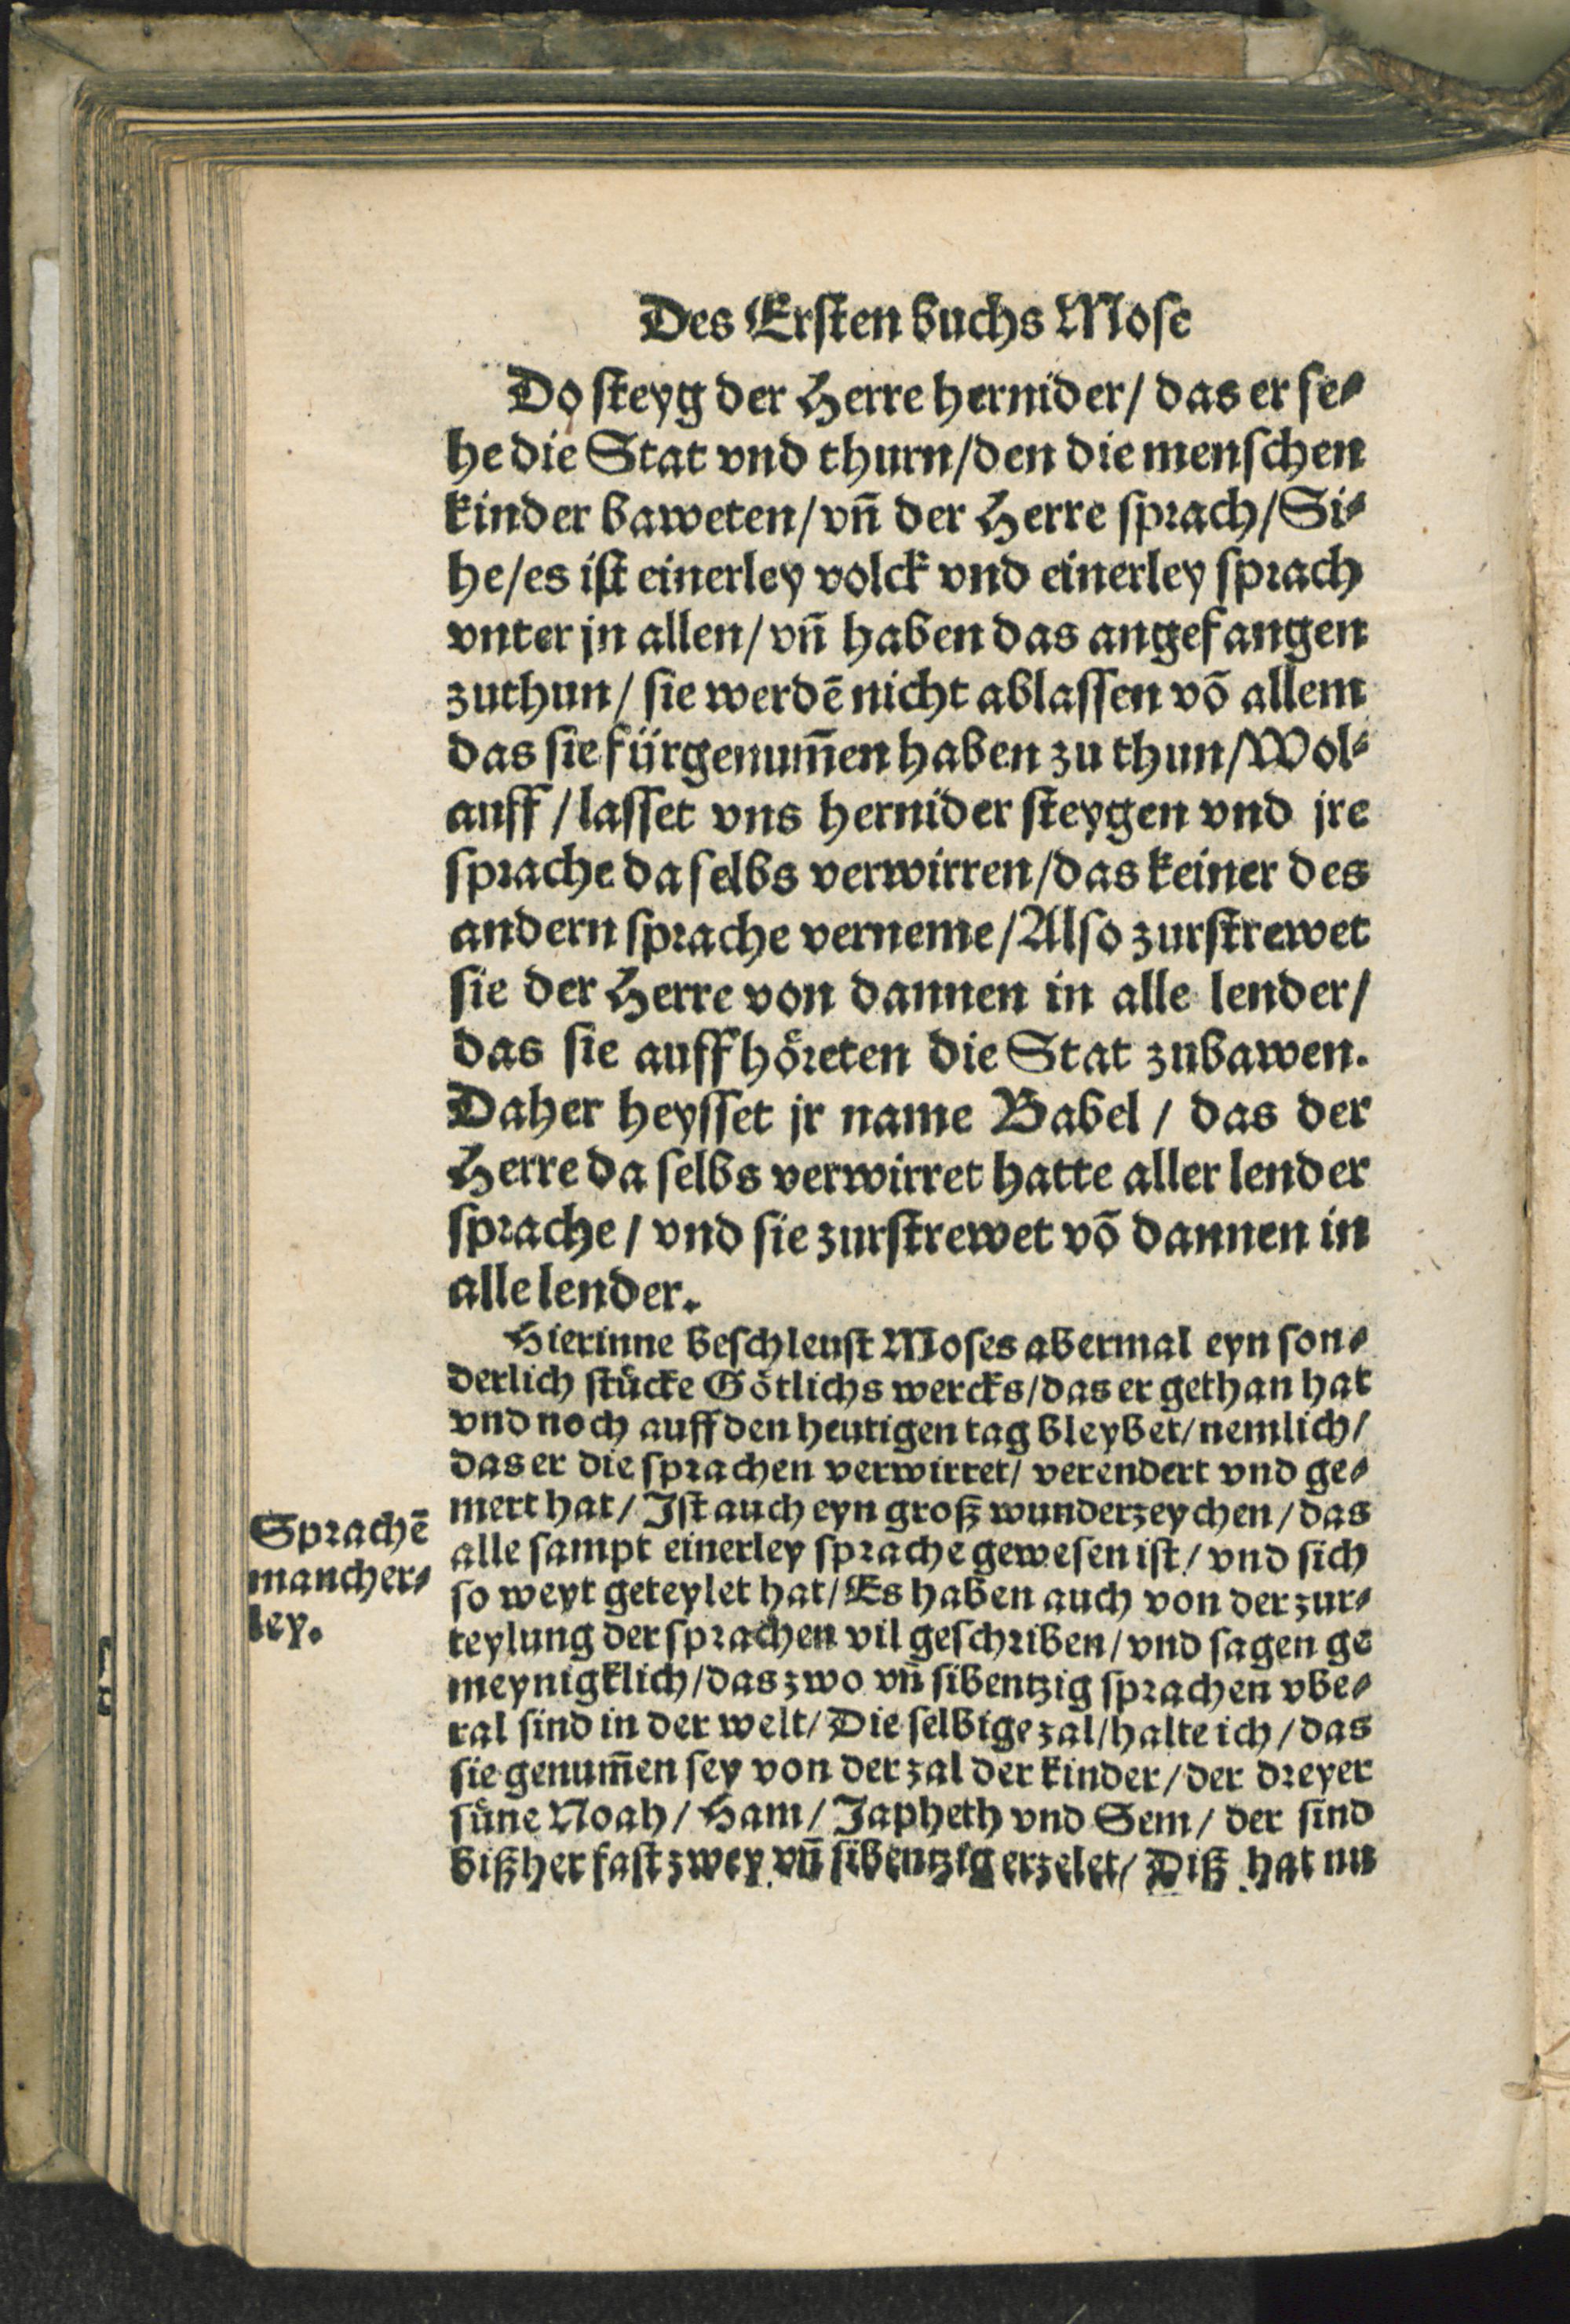 Des Ersten buchs Mose
Do steyg der Herre hernider/ das er se⸗
he die Stat vnd thurn/den die menschen
kinder baweten/vñ der Herre sprach/Si⸗
he/es ist einerley volck vnd einerley sprach
vnter jn allen/vñ haben das angefangen
zuthun/ sie werdẽ nicht ablassen võ allem
das sie fürgenum̃en haben zu thun/Wol⸗
auff/lasset vns hernider steygen vnd jre
sprache da selbs verwirren/das keiner des
andern sprache verneme/Also zurstrewet
sie der Herre von dannen in alle lender/
das sie auffhöreten die Stat zubawen.
Daher heysset jr name Babel/ das der
Herre da selbs verwirret hatte aller lender
sprache/ vnd sie zurstrewet võ dannen in
alle lender.
Hierinne beschleust Moses abermal eyn son⸗
derlich stücke Götlichs wercks/das er gethan hat
vnd noch auff den heutigen tag bleybet/nemlich/
das er die sprachen verwirret/ verendert vnd ge⸗
mert hat/ Ist auch eyn groß wunderzeychen/das
alle sampt einerley sprache gewesen ist/ vnd sich
so weyt geteylet hat/Es haben auch von der zur⸗
teylung der sprachen vil geschriben/vnd sagen ge
meynigklich/das zwo vñ sibentzig sprachen vbe⸗
ral sind in der welt/Die selbige zal/halte ich/das
sie genum̃en sey von der zal der kinder/der dreyer
süne Noah/ Ham/ Japheth vnd Sem/ der sind
bißher fast zwey vñ sibentzig erzelet/ Diß hat nu
Sprachẽ
mancher⸗
ley.